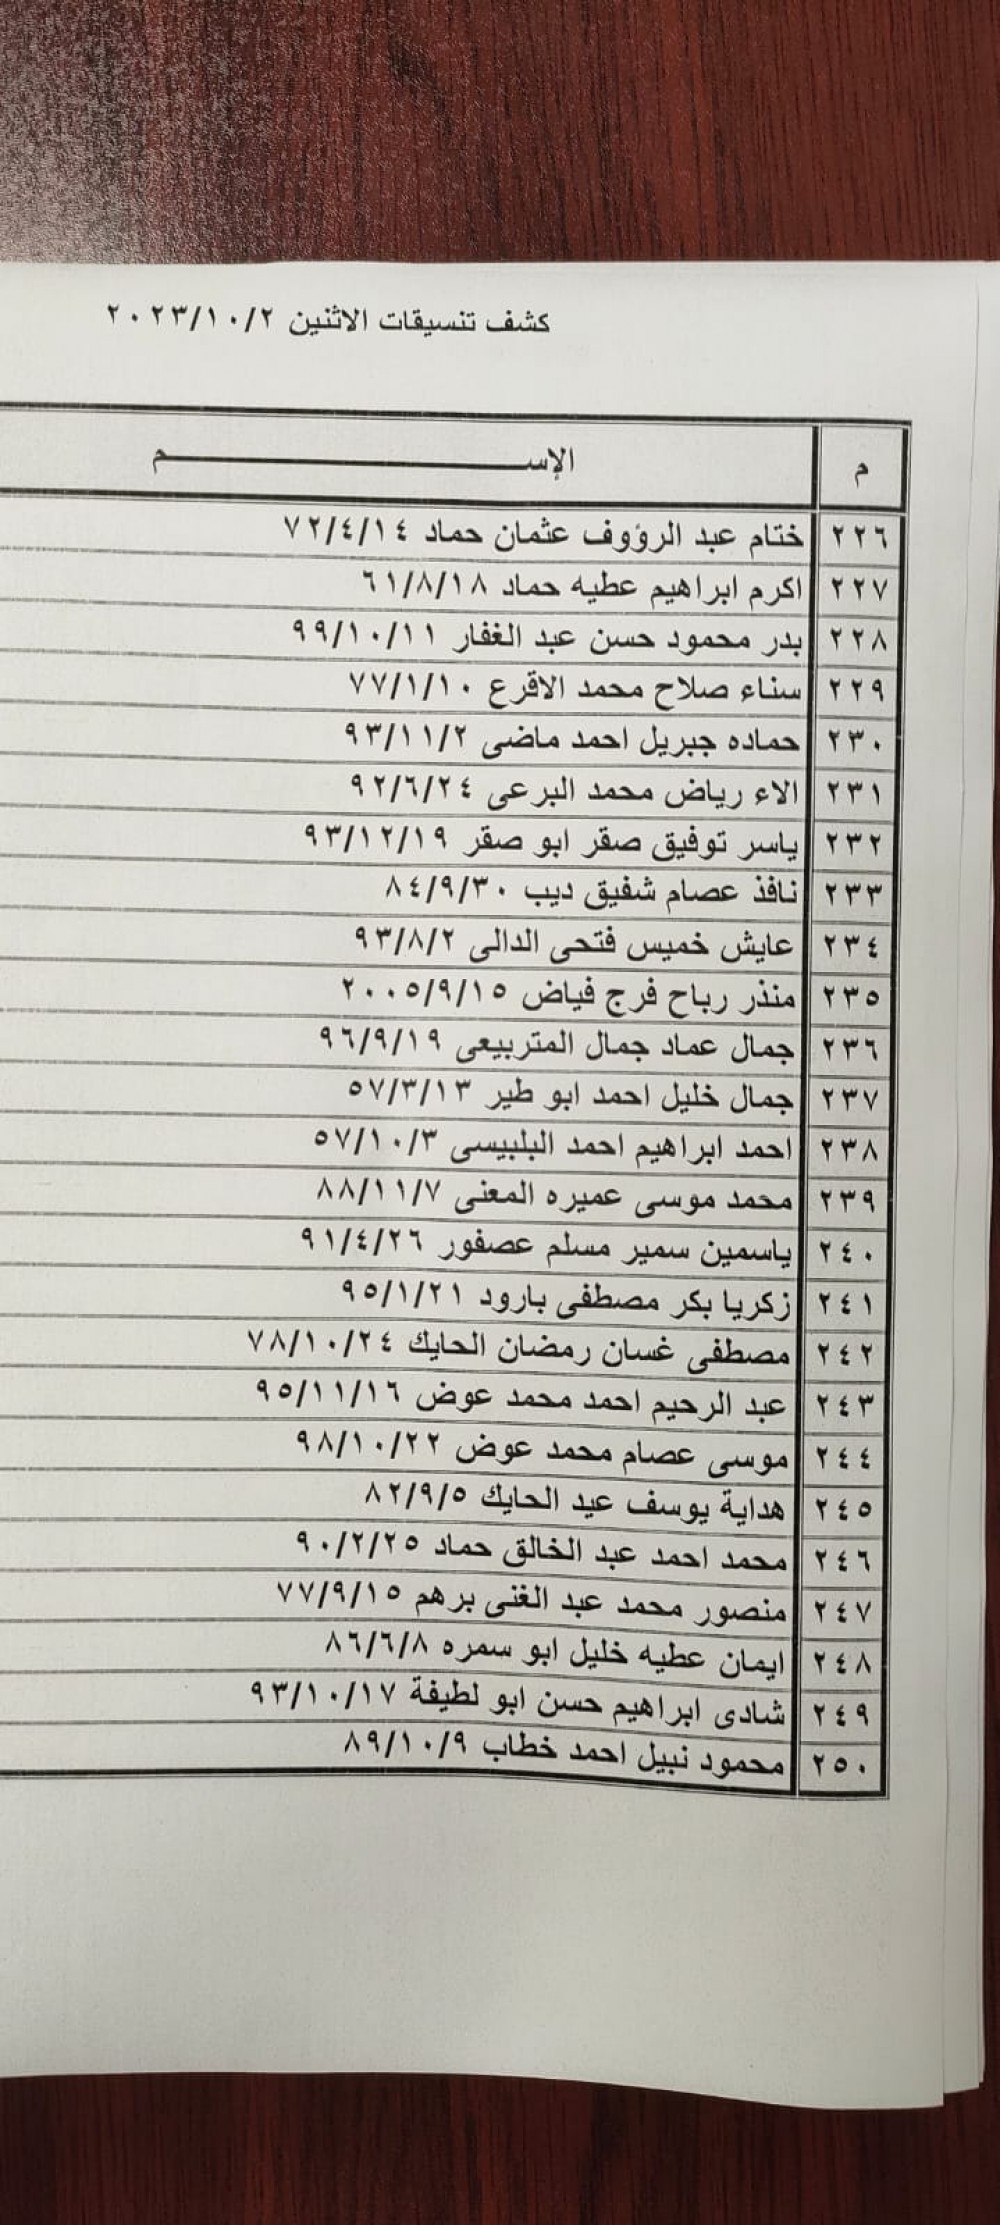 كشف تنسيقات الاثنين ٢٠٢٣/١٠/٢
م الإســـــــــــــم
٢٢٦ ختام عبد الرؤوف عثمان حماد ٧٢/٤/١٤
٢٢٧ اكرم ابراهيم عطيه حماد ٦١/٨/١٨
٢٢٨ بدر محمود حسن عبد الغفار ٩٩/١٠/١١
٢٢٩ سناء صلاح محمد الاقرع ٧٧/١/١٠
٢٣٠ حماده جبريل احمد ماضى ٩٣/١١/٢
٢٣١ الاء رياض محمد البرعى ٩٢/٦/٢٤
٢٣٢ ياسر توفيق صقر ابو صقر ٩٣/١٢/١٩
٢٣٣ نافذ عصام شفيق ديب ٨٤/٩/٣٠
٢٣٤ عايش خميس فتحى الدالى ٩٣/٨/٢
٢٣٥ منذر رباح فرج فياض ٢٠٠٥/٩/١٥
٢٣٦ جمال عماد جمال المتربيعى ٩٦/٩/١٩
٢٣٧ جمال خليل احمد ابو طير ٥٧/٣/١٣
٢٣٨ احمد ابراهيم احمد البلبيسى ٥٧/١٠/٣
٢٣٩ محمد موسى عميره المعنى ٨٨/١١/٧
٢٤٠ ياسمين سمير مسلم عصفور ٩١/٤/٢٦
٢٤١ زكريا بكر مصطفى بارود ٩٥/١/٢١
٢٤٢ مصطفى غسان رمضان الحايك ٧٨/١٠/٢٤
٢٤٣ عبد الرحيم احمد محمد عوض ٩٥/١١/١٦
٢٤٤ موسى عصام محمد عوض ٩٨/١٠/٢٢
٢٤٥ هداية يوسف عيد الحايك ٨٢/٩/٥
٢٤٦ محمد احمد عبد الخالق حماد ٩٠/٢/٢٥
٢٤٧ منصور محمد عبد الغنى برهم ٧٧/٩/١٥
٢٤٨ ايمان عطيه خليل ابو سمره ٨٦/٦/٨
٢٤٩ شادى ابراهيم حسن ابو لطيفة ٩٣/١٠/١٧
٢٥٠ محمود نبيل احمد خطاب ٨٩/١٠/٩